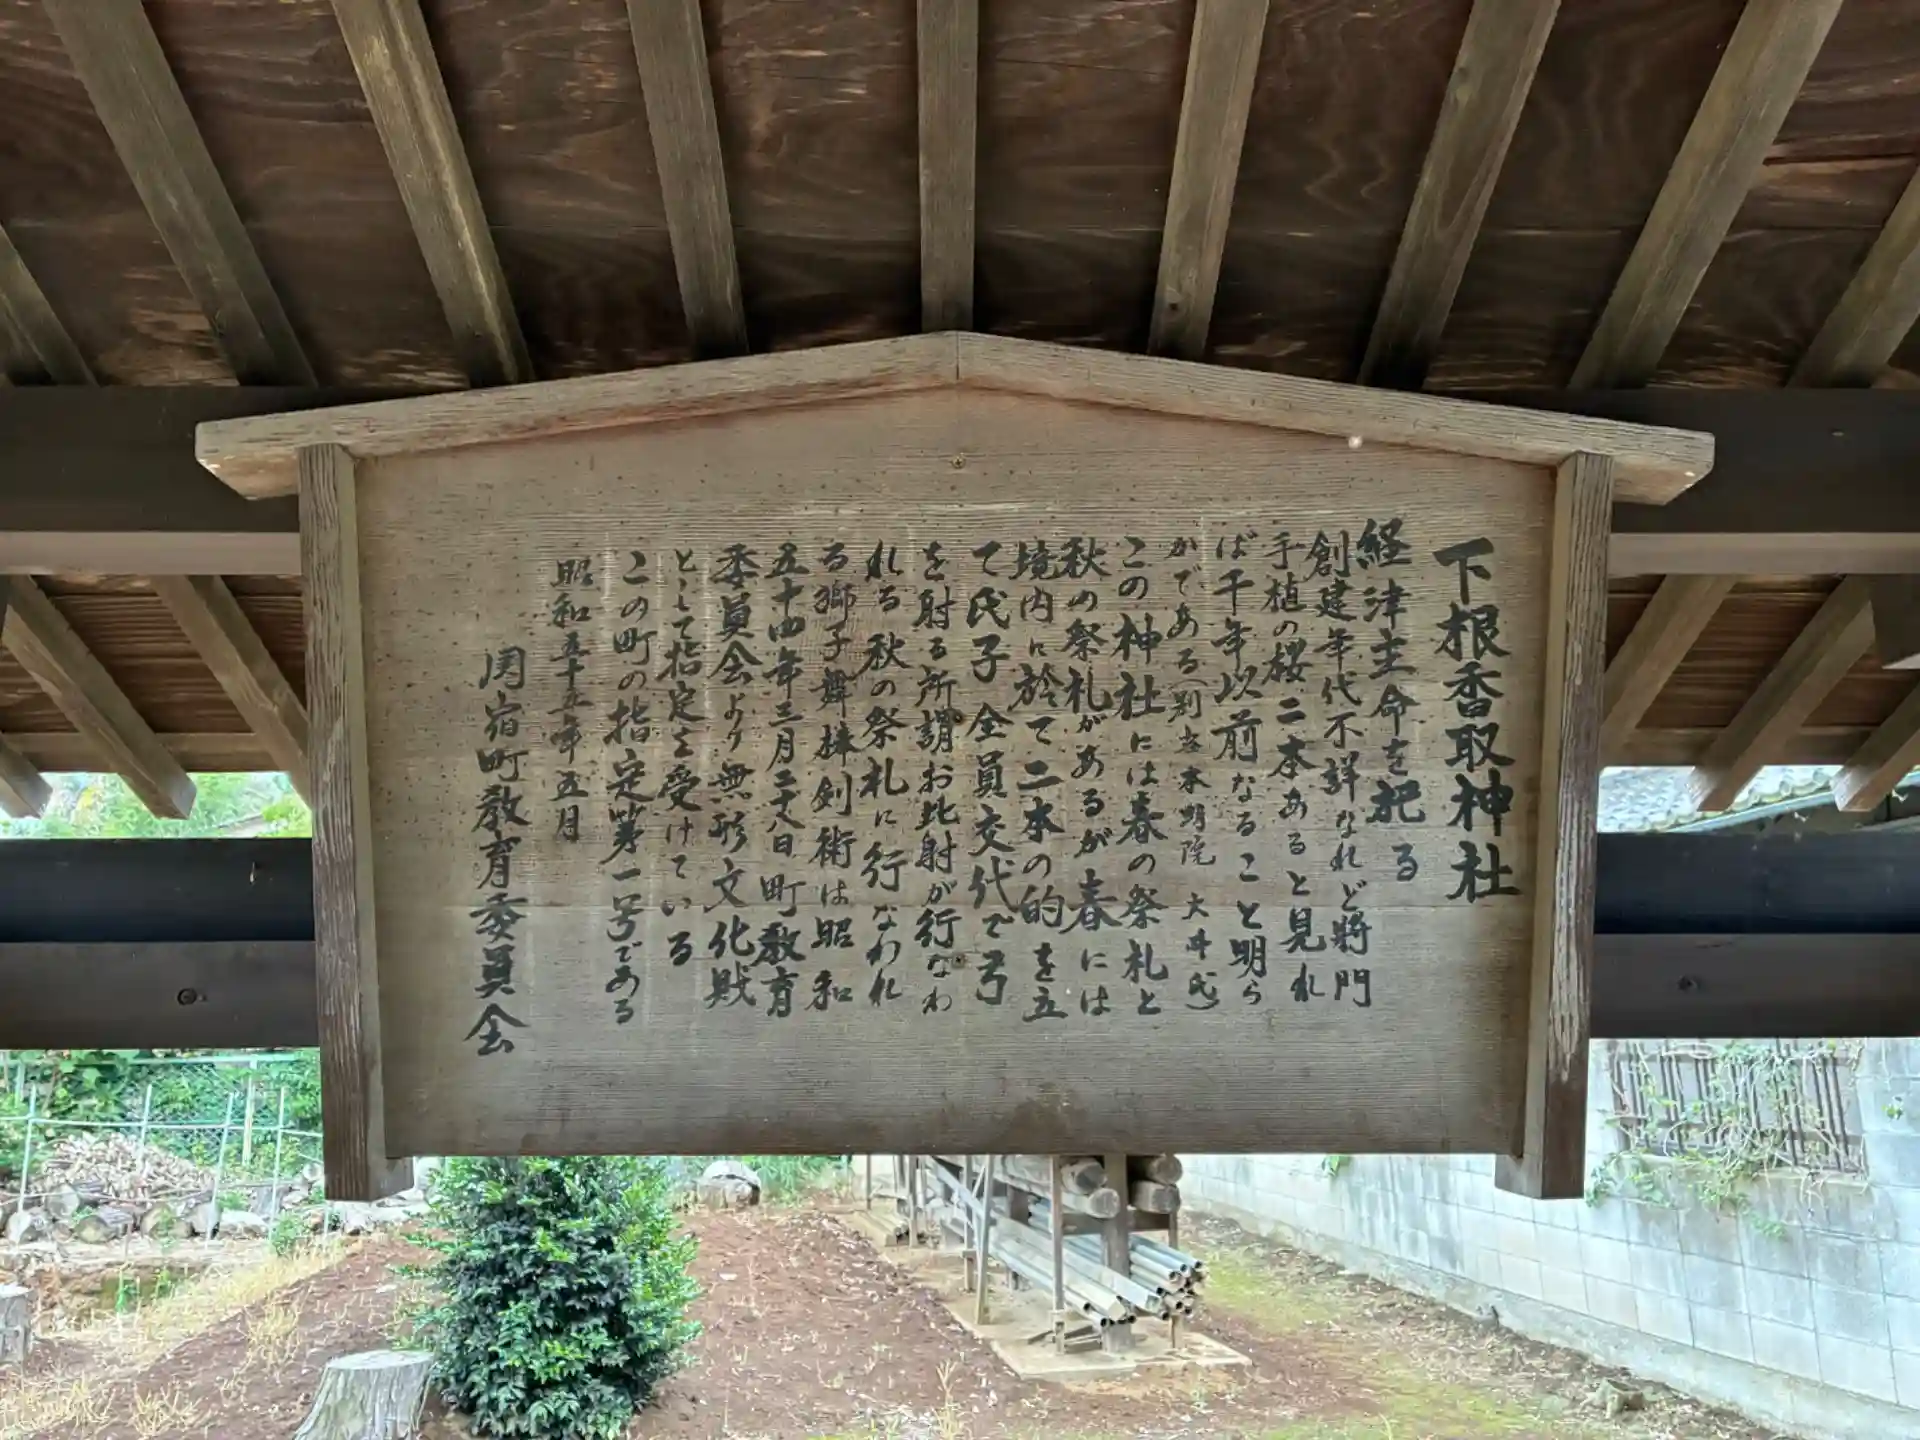 下根香取神社
経津主命を祀る
創建年代不詳なれど将門
手植の桜二本あると見れ
ば千年以前なること明ら
かである(別当本明院 大井氏)
この神社には春の祭礼と
秋の祭礼があるが春には
境内に於て二本の的を立
て氏子全員交代で弓
を射る所謂お比射が行なわ
れる 秋の祭礼に行なわれ
る獅子舞棒剣術は昭和
五十四年三月二十八日町教育
委員会より無形文化財
として指定を受けている
この町の指定第一号である
昭和五十五年五月
関宿町教育委員会